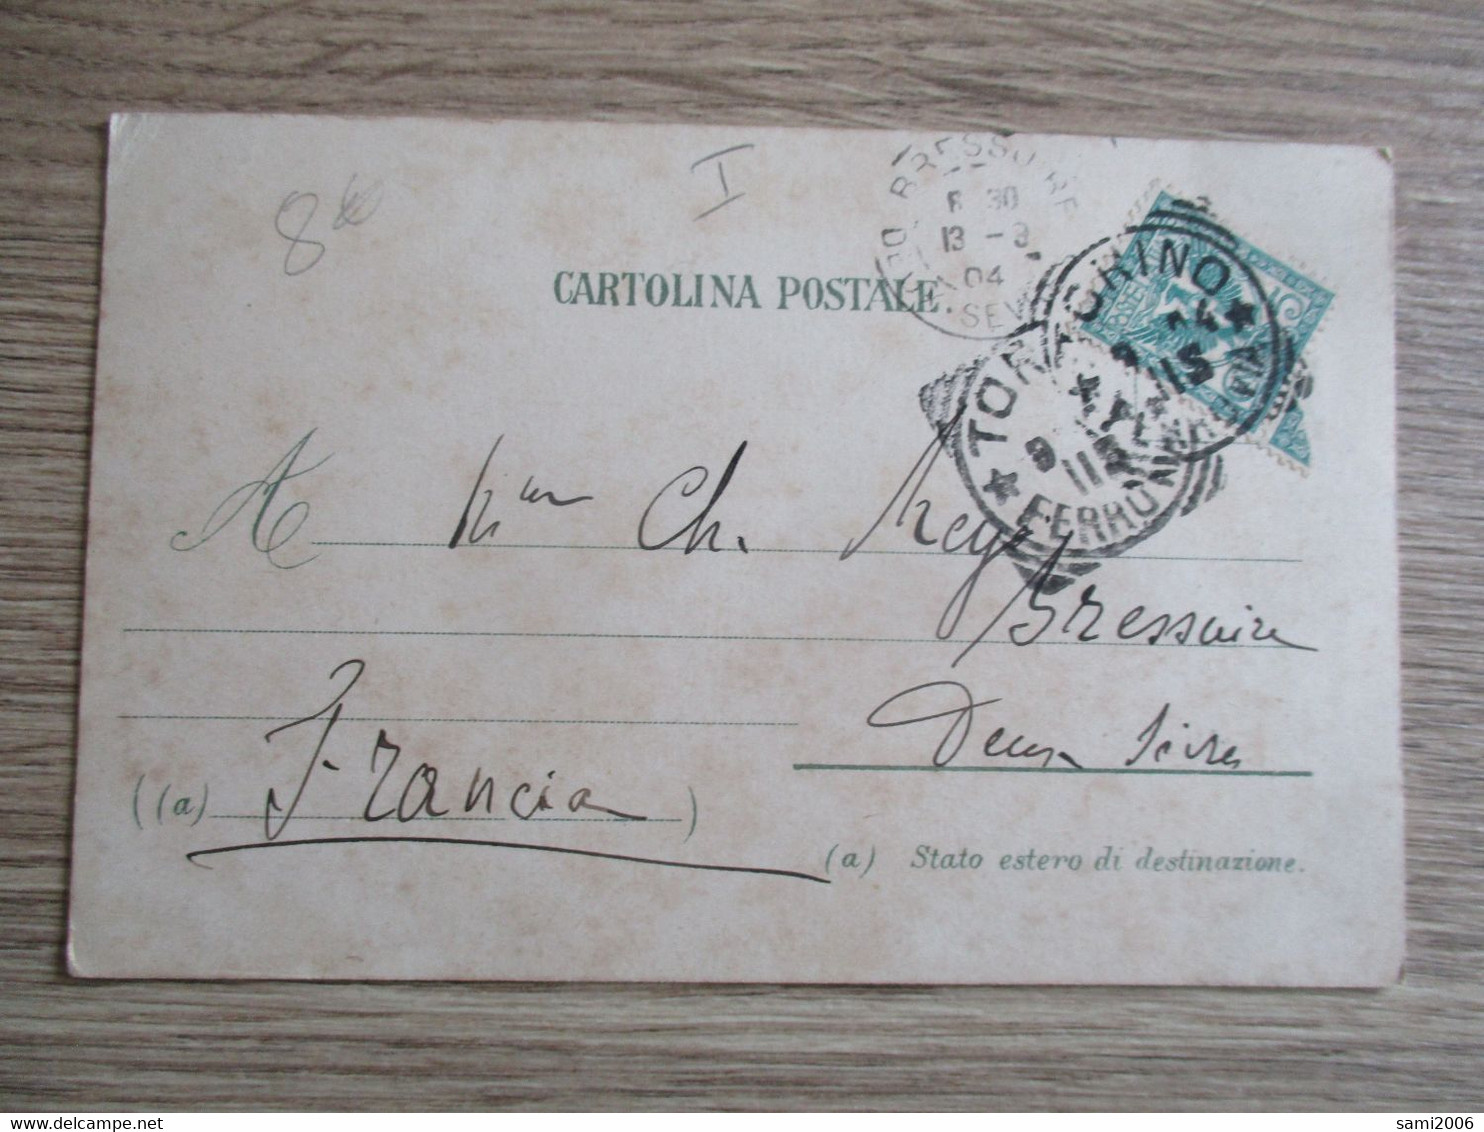 8
I
BRESSUIRE
8 30
13 - 3
04
SEV
CARTOLINA POSTALE.
TORINO
TORINO
15
9
FERROVIA
A Ch.
Bressuire
Deux Sèvres
((a) Francia )
(a) Stato estero di destinazione.
delcampe.net
sami2006